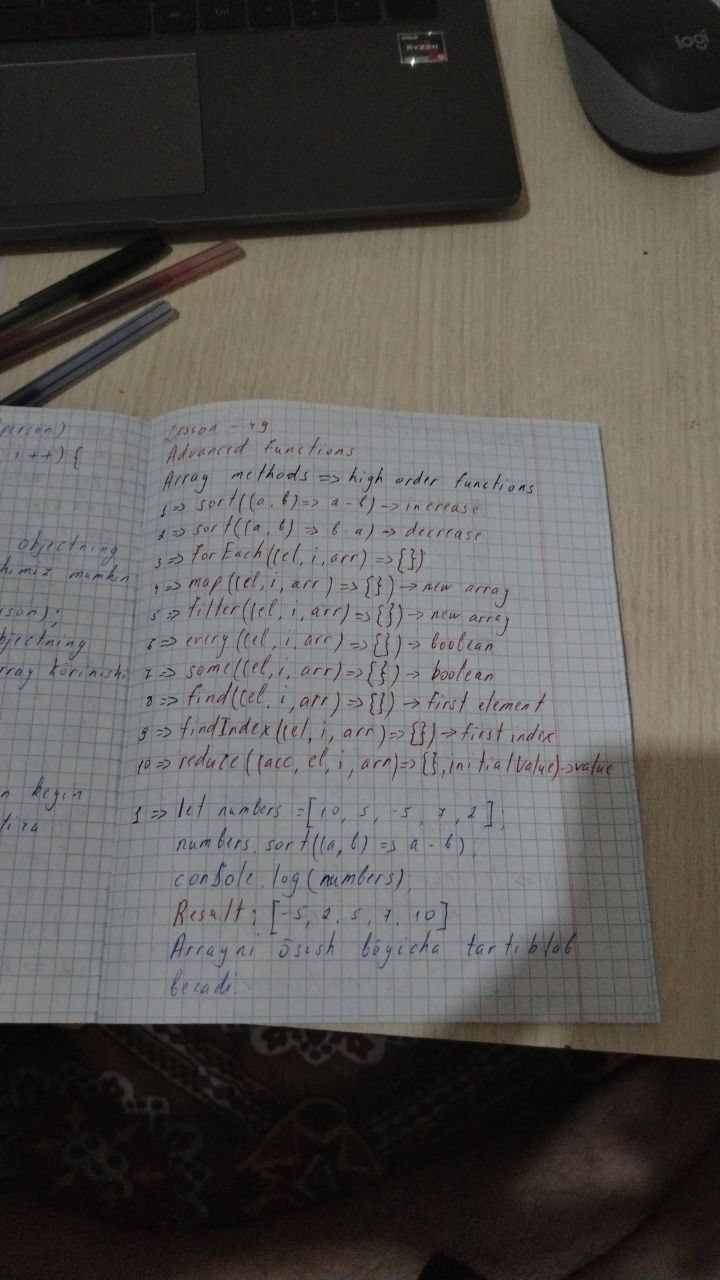 AMD
RYZEN
logi
person)
i++) {
objectning
mumkin
son);
bjectning
rray körinishi
n keyin
Lesson - 49
Advanced functions
Array methods => high order functions
1 => sort((a, b) => a - b) -> increase
2 => sort((a, b) => b - a) -> decrease
3 => forEach((el, i, arr) => {})
4 => map((el, i, arr) => {}) -> new array
5 => filter((el, i, arr) => {}) -> new array
6 => every((el, i, arr) => {}) -> boolean
7 => some((el, i, arr) => {}) -> boolean
8 => find((el, i, arr) => {}) -> first element
9 => findIndex((el, i, arr) => {}) -> first index
10 => reduce((acc, el, i, arr) => {}, initialValue) -> value
1 => let numbers = [10, 5, -5, 7, 2];
numbers.sort((a, b) => a - b);
console.log(numbers);
Result: [-5, 2, 5, 7, 10]
Arrayni ösish böyicha tartiblab
beradi.